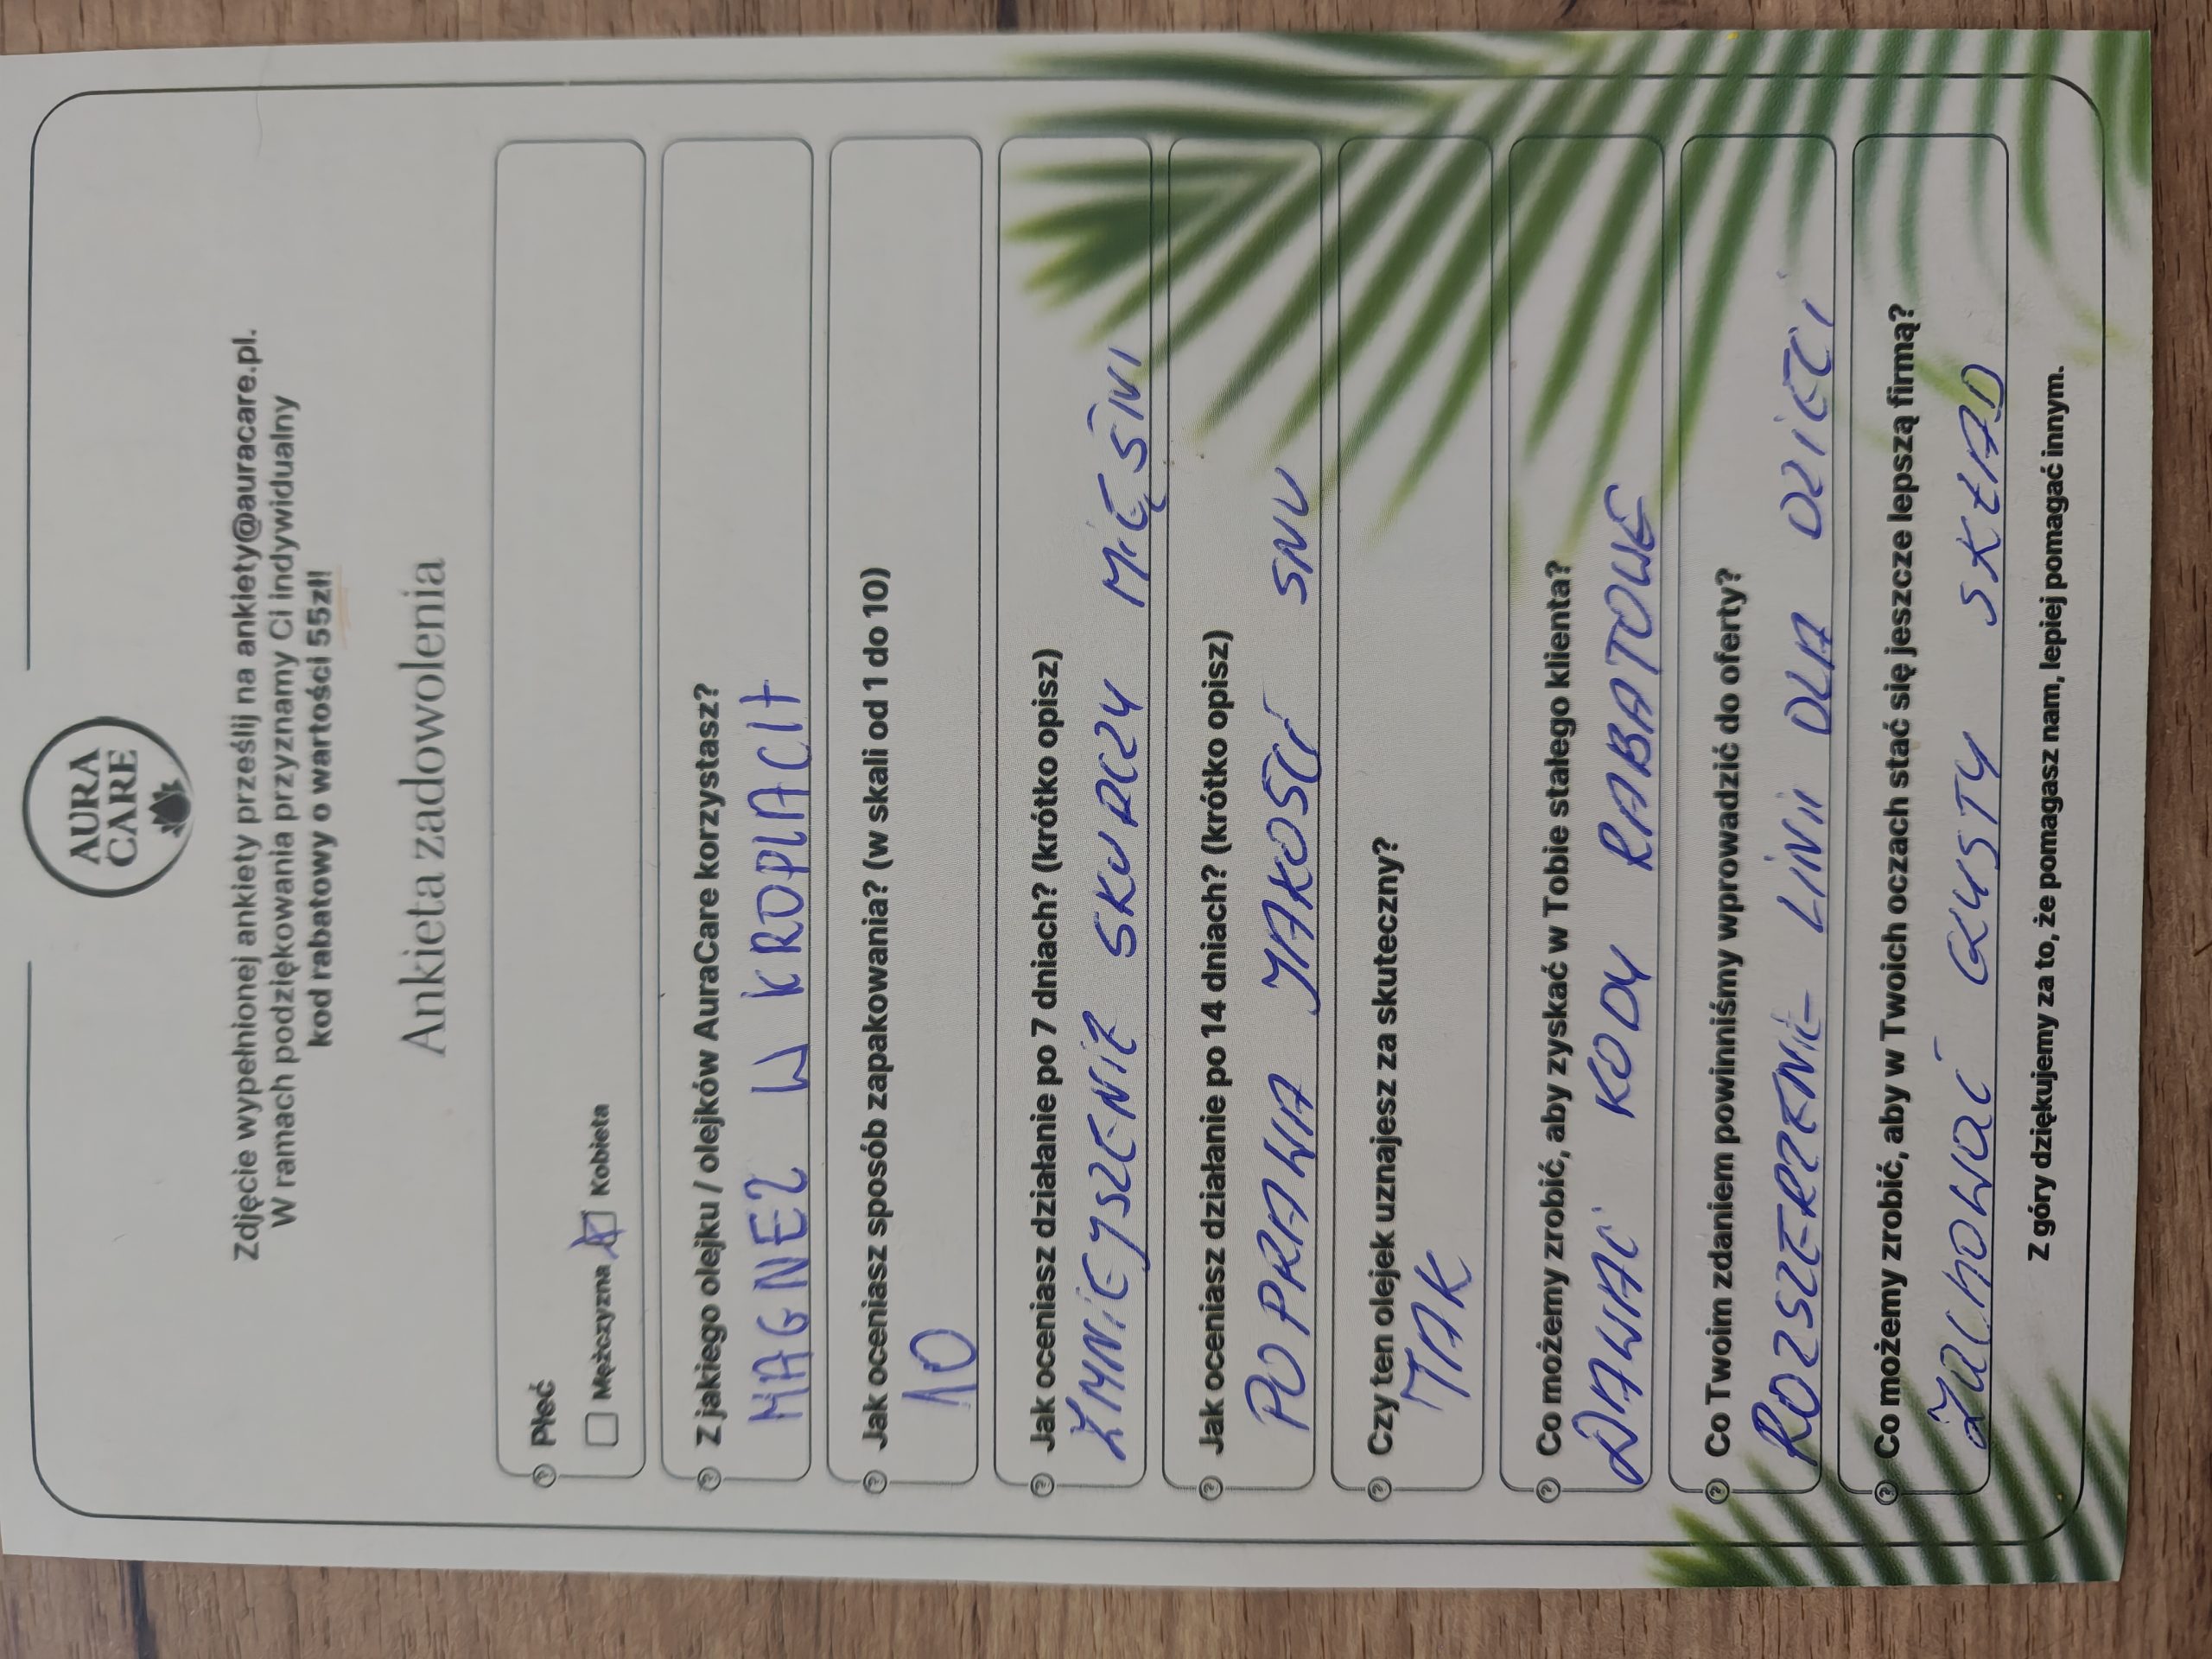 AURA
CARE
Zdjęcie wypełnionej ankiety prześlij na ankiety@auracare.pl.
W ramach podziękowania przyznamy Ci indywidualny
kod rabatowy o wartości 55zł!
Ankieta zadowolenia
Płeć
Mężczyzna Kobieta
Z jakiego olejku / olejków AuraCare korzystasz?
MAGNEZ W KROPLACH
Jak oceniasz sposób zapakowania? (w skali od 1 do 10)
10
Jak oceniasz działanie po 7 dniach? (krótko opisz)
ZMNIEJSZENIE SKURCZY MIĘŚNI
Jak oceniasz działanie po 14 dniach? (krótko opisz)
POPRAWA JAKOŚCI SNU
Czy ten olejek uznajesz za skuteczny?
TAK
Co możemy zrobić, aby zyskać w Tobie stałego klienta?
DAWAĆ KODY RABATOWE
Co Twoim zdaniem powinniśmy wprowadzić do oferty?
ROZSZERZENIE LINII DLA DZIECI
Co możemy zrobić, aby w Twoich oczach stać się jeszcze lepszą firmą?
Zachować CZYSTY SKŁAD
Z góry dziękujemy za to, że pomagasz nam, lepiej pomagać innym.